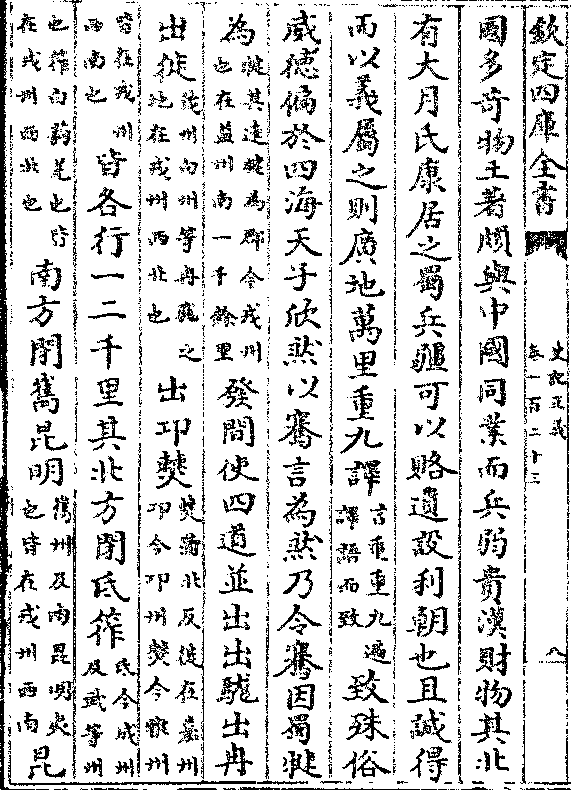 欽定四庫全書
史記正義
卷一百二十三
八
國多奇物土著頗與中國同業而兵弱貴漢財物其北
有大月氏康居之蜀兵疆可以賂遺設利朝也且誠得
而以義屬之則廣地萬里重九譯言重重九遍譯語而致致殊俗
威德徧於四海天子欣然以騫言為然乃令騫因蜀犍
為犍其連犍為郡今戎州也在益州南一千餘里發間使四道並出出駹出冉
出徙茂州向州等冉駹之地在戎州西北也出卭僰僰蒲北反徙在嘉州卭今卭州僰今雅州
皆在戎州西南也皆各行一二千里其北方閉氐筰氐今成州及武等州
也筰白茍羌也皆在戎州西北也南方閉巂昆明巂州及南昆明夷也皆在戎州西南昆